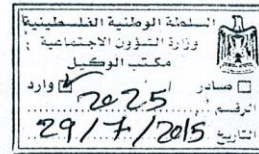 السلطة الوطنية الفلسطينية
وزارة الشؤون الاجتماعية
مكتب الوكيل
صادر وارد
الرقم 2025
التاريخ 29/7/2015